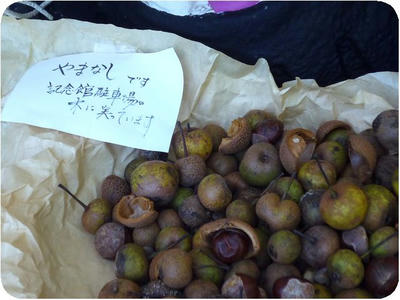 やまなし です
記念館駐車場の
水に実っています